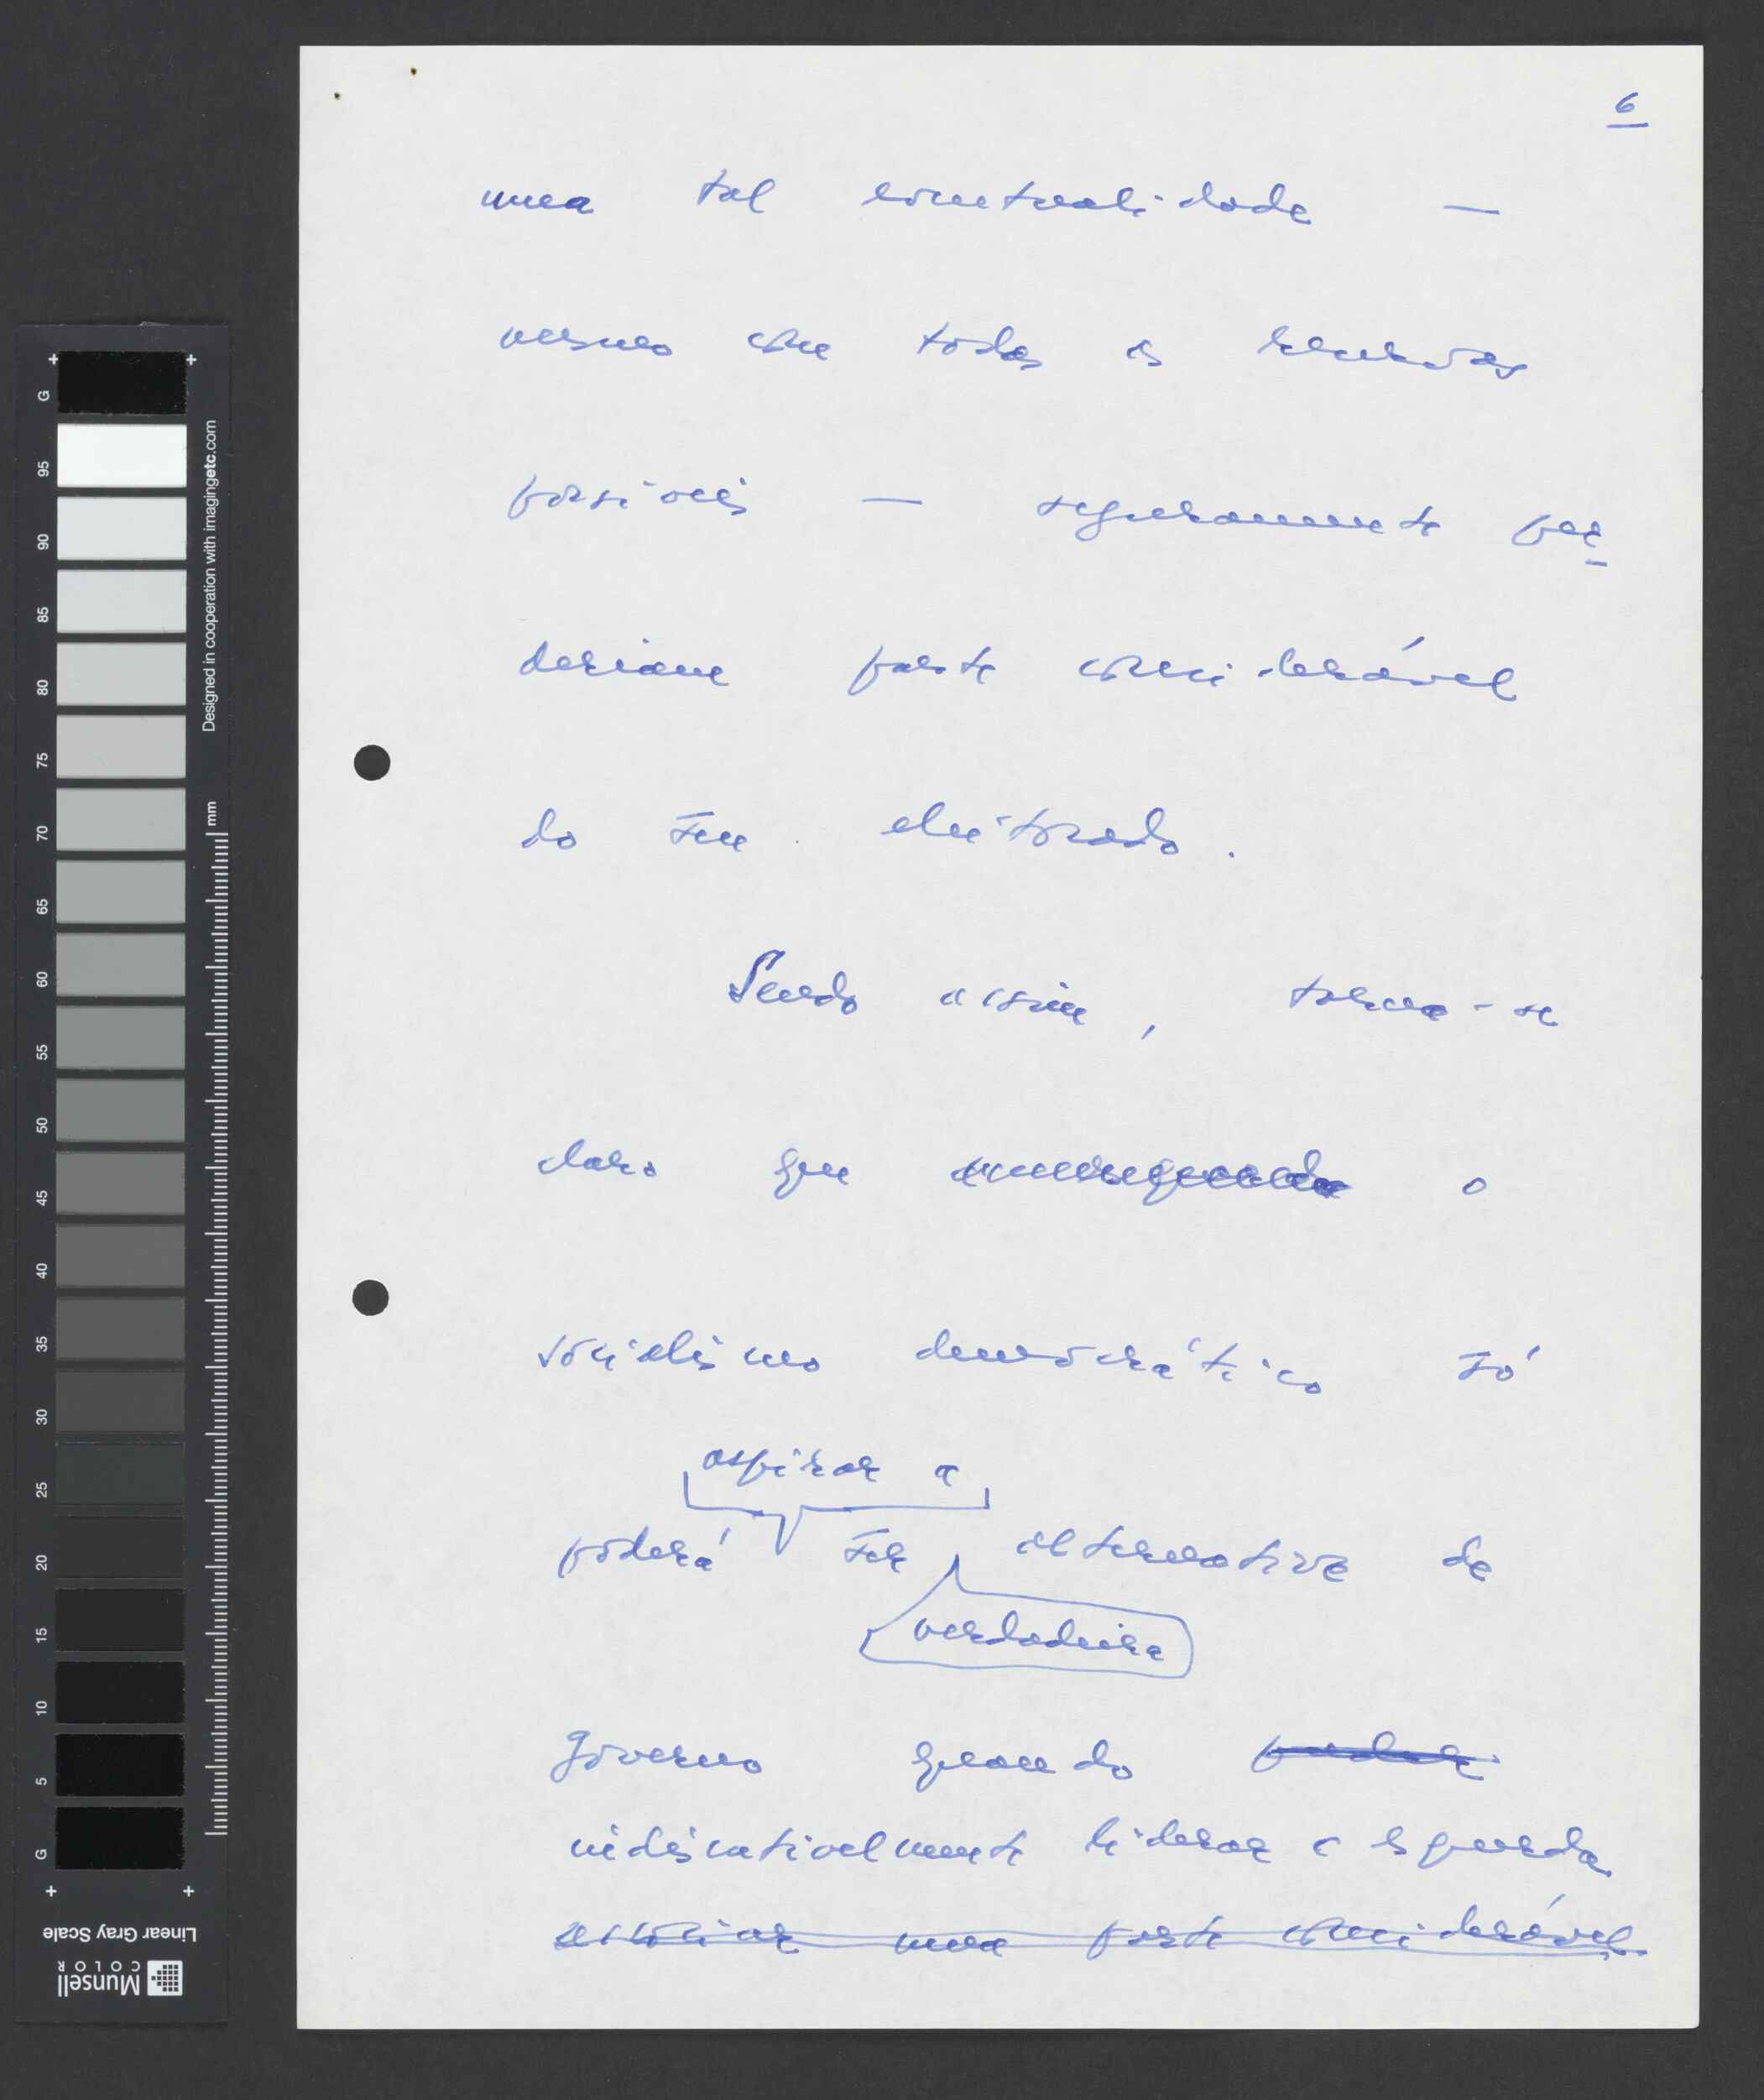 6
uma tal eventualidade —
mesmo com todas as reservas
possíveis — seguramente per
deriam parte considerável
do seu eleitorado.
Sendo assim, torna-se
claro que o
socialismo democrático só
aspirar a
poderá ser alternativa de
verdadeira
governo quando puder
indiscutivelmente liderar a esquerda
uma parte considerável
G
95
90
85
80
75
70
65
60
55
50
45
40
35
30
25
20
15
10
5
G
Designed in cooperation with imagingetc.com
mm
Linear Gray Scale
Munsell
COLOR